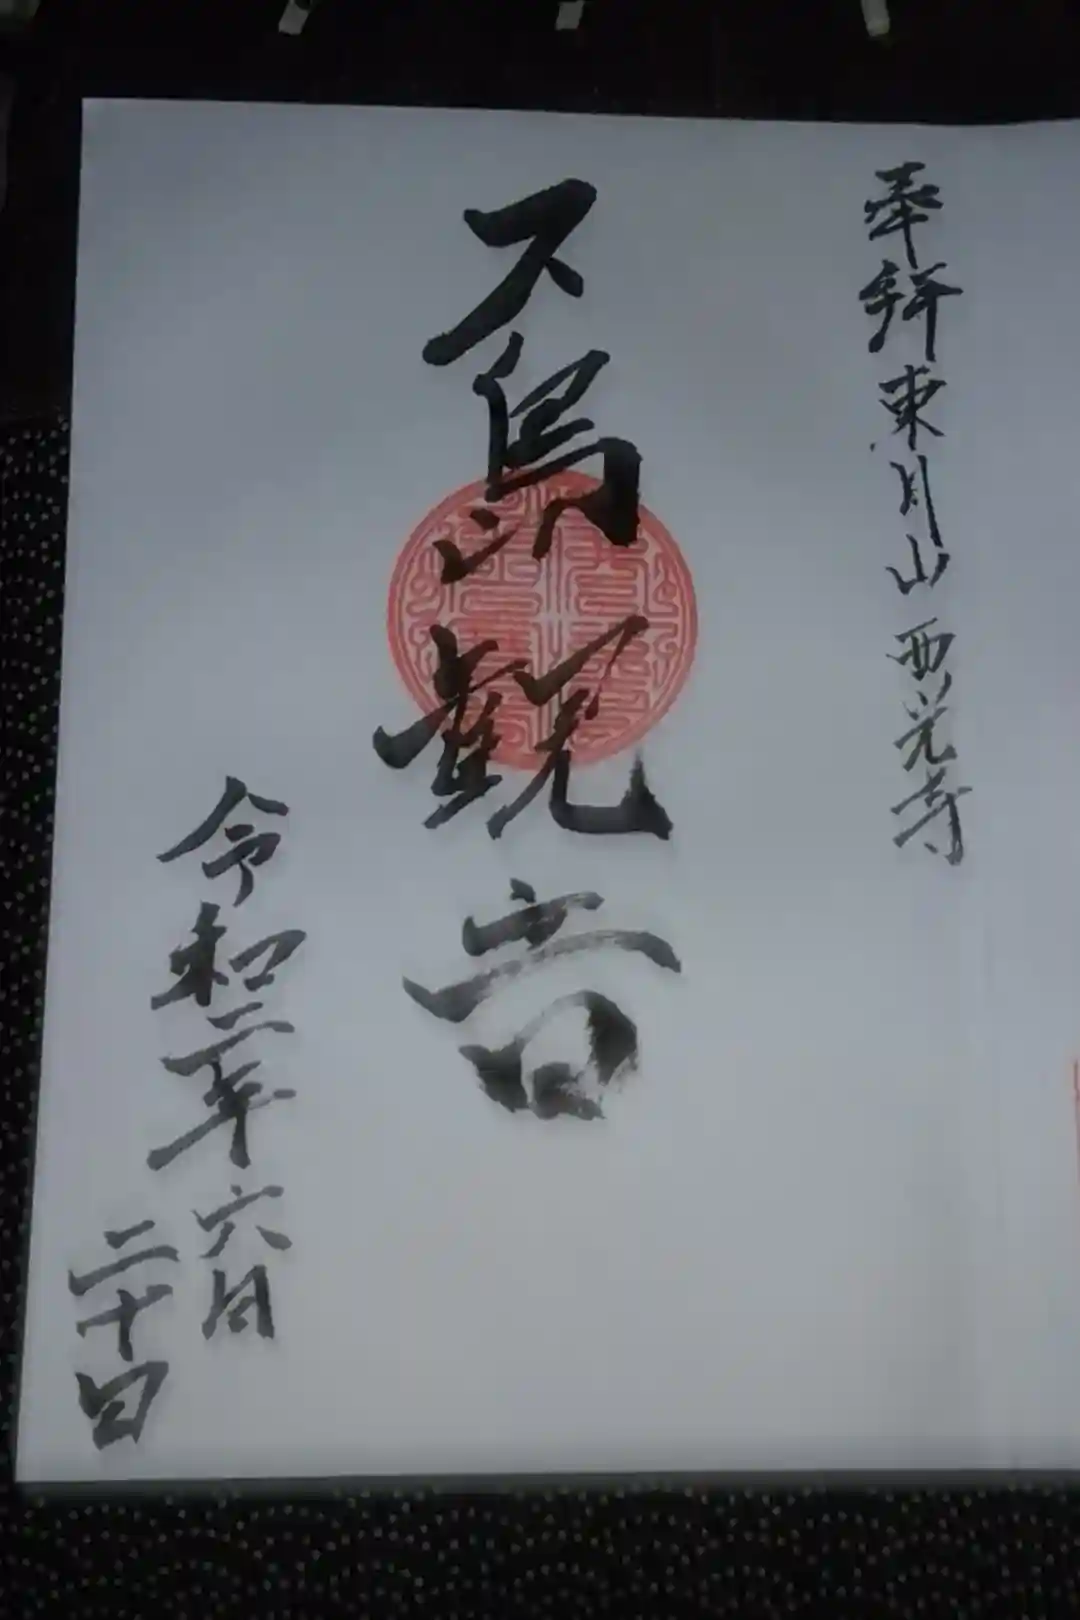 奉拝 東月山 西光寺
観音
令和二年六月
二十日